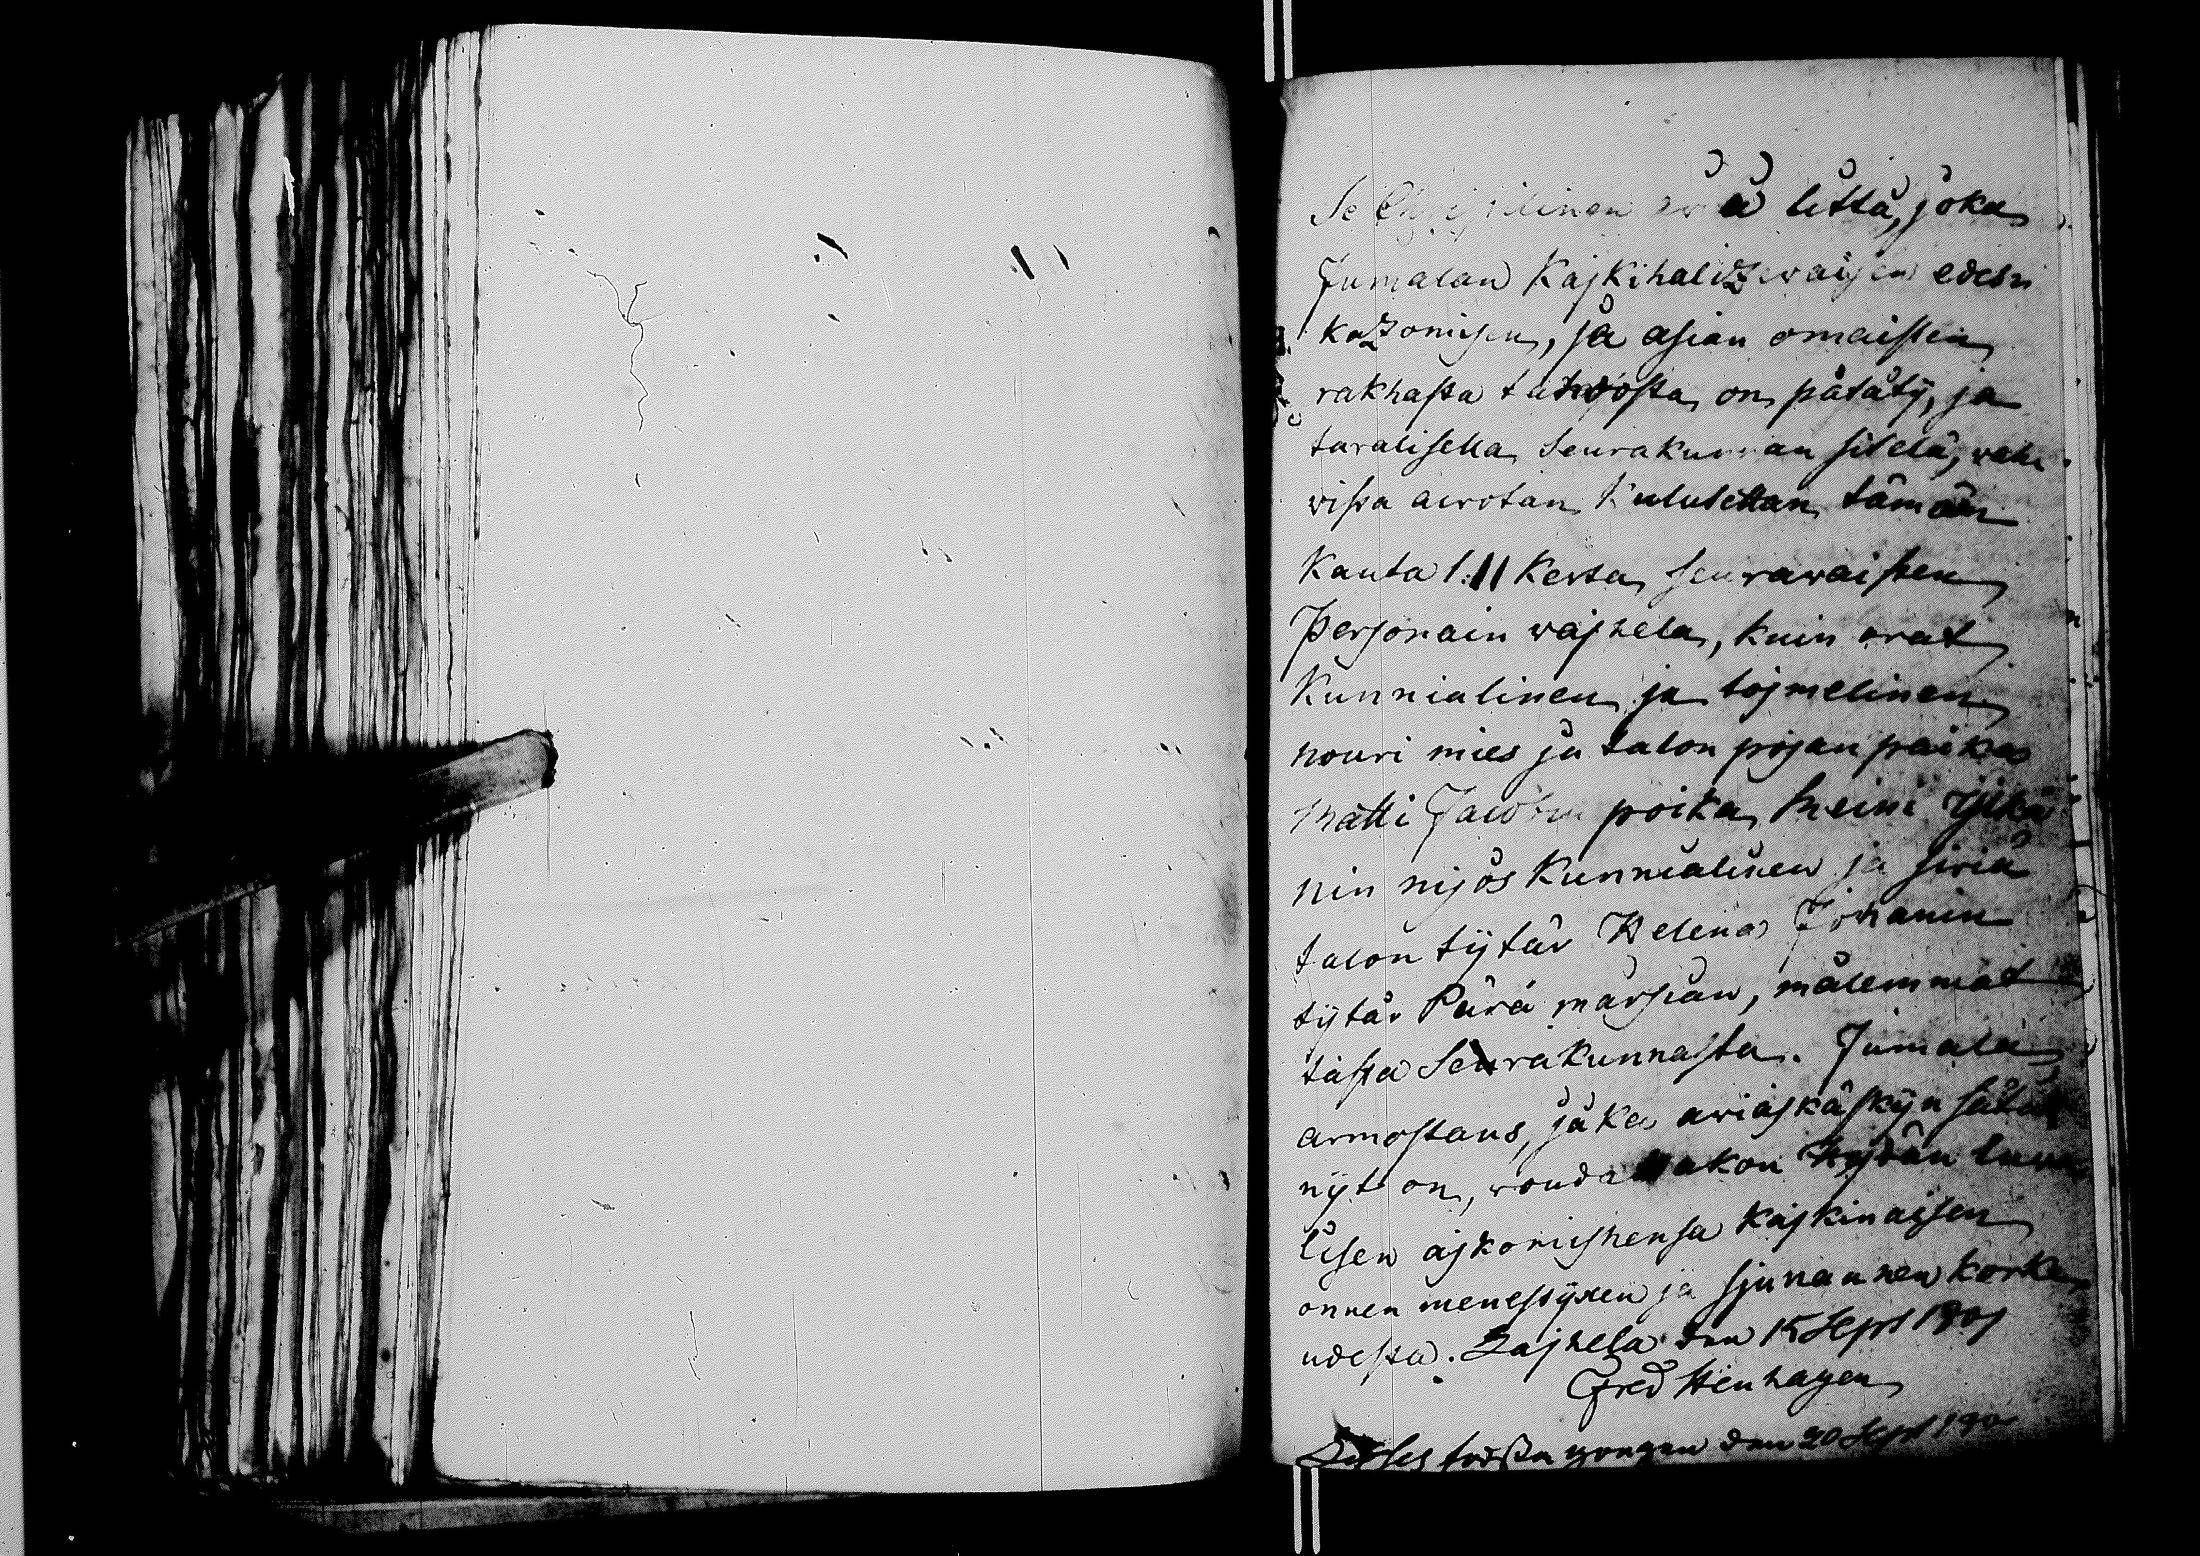 Se Christilinen litto, joka
Jumalan Kajkihalizewaisen edes
kazomisen, ja asian omaisten
rakhasta tahdosta on pätätÿ, ja
tavalisella Seurakunnan sitelä, vah-
vissa aivotan Kulutettan tämän
Kauta 1:11 Kersa seuravaisten
Personain vajhela, kuin ovat
Kunnialinen ja tojmelinen
nouri mies ja talon pojan paikas
Matti Jacobin poika Heini Ylkä
nin mÿös Kunnialinen ja siviä
talon tÿtär Helena Johanin
tÿtär Perä märsian, mälemmat
tässä Seurakunnasta. Jumala
armostans, joka aviaskäskÿn sätä
nÿt on, vouda akon hejdän luva
lisen ajkomishensa Kajkinaisen
onnen menestÿxen ja sjunauxen korke
udesta. Lajhela den 15 Sept 1801
Gfred Stenhagen
Lÿstes första gongen den 20 Sept 180